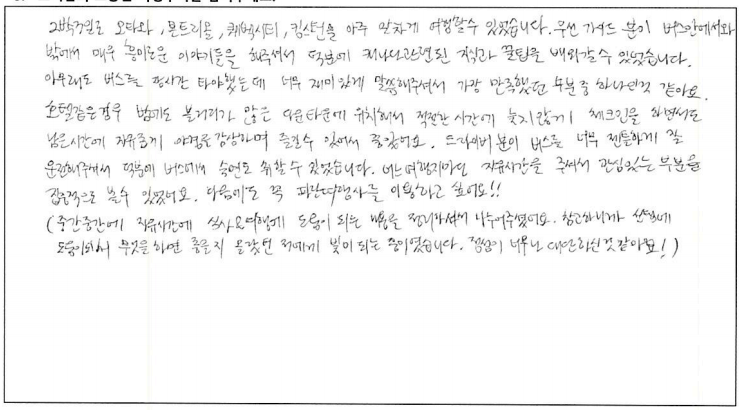 2박3일로 오타와, 몬트리올, 퀘벡시티, 킹스턴을 아주 알차게 여행할 수 있었습니다. 우선 가이드 분이 버스안에서와
밖에서 매우 흥미로운 이야기들을 해주셔서 덕분에 캐나다관련된 지식과 꿀팁을 배워갈 수 있었습니다.
아무래도 버스를 장시간 타야했는데 너무 재미있게 말씀해주셔서 가장 만족했던 부분중 하나인것 같아요.
호텔같은경우 밤에도 볼거리가 많은 다운타운에 위치해서 적절한 시간에 늦지않게 체크인을 하면서도
남은시간에 자유롭게 야경을 감상하며 즐길수 있어서 좋았어요. 드라이버 분이 버스를 너무 젠틀하게 잘
운전해주셔서 덕분에 버스에서 숙면도 취할 수 있었습니다. 어느 여행지마다 자유시간을 주셔서 관심있는 부분을
집중적으로 볼수 있었어요. 다음에도 꼭 파란여행사를 이용하고 싶어요!!
(중간중간에 자유시간에 식사요 여행에 도움이 되는 내용을 정리하셔서 나누어주셨어요. 참고하니까 선택에
도움이되서 무엇을 하면 좋을지 몰랐던 저에게 빛이 되는 종이였습니다. 정성이 너무나 대단하신것 같아요!)